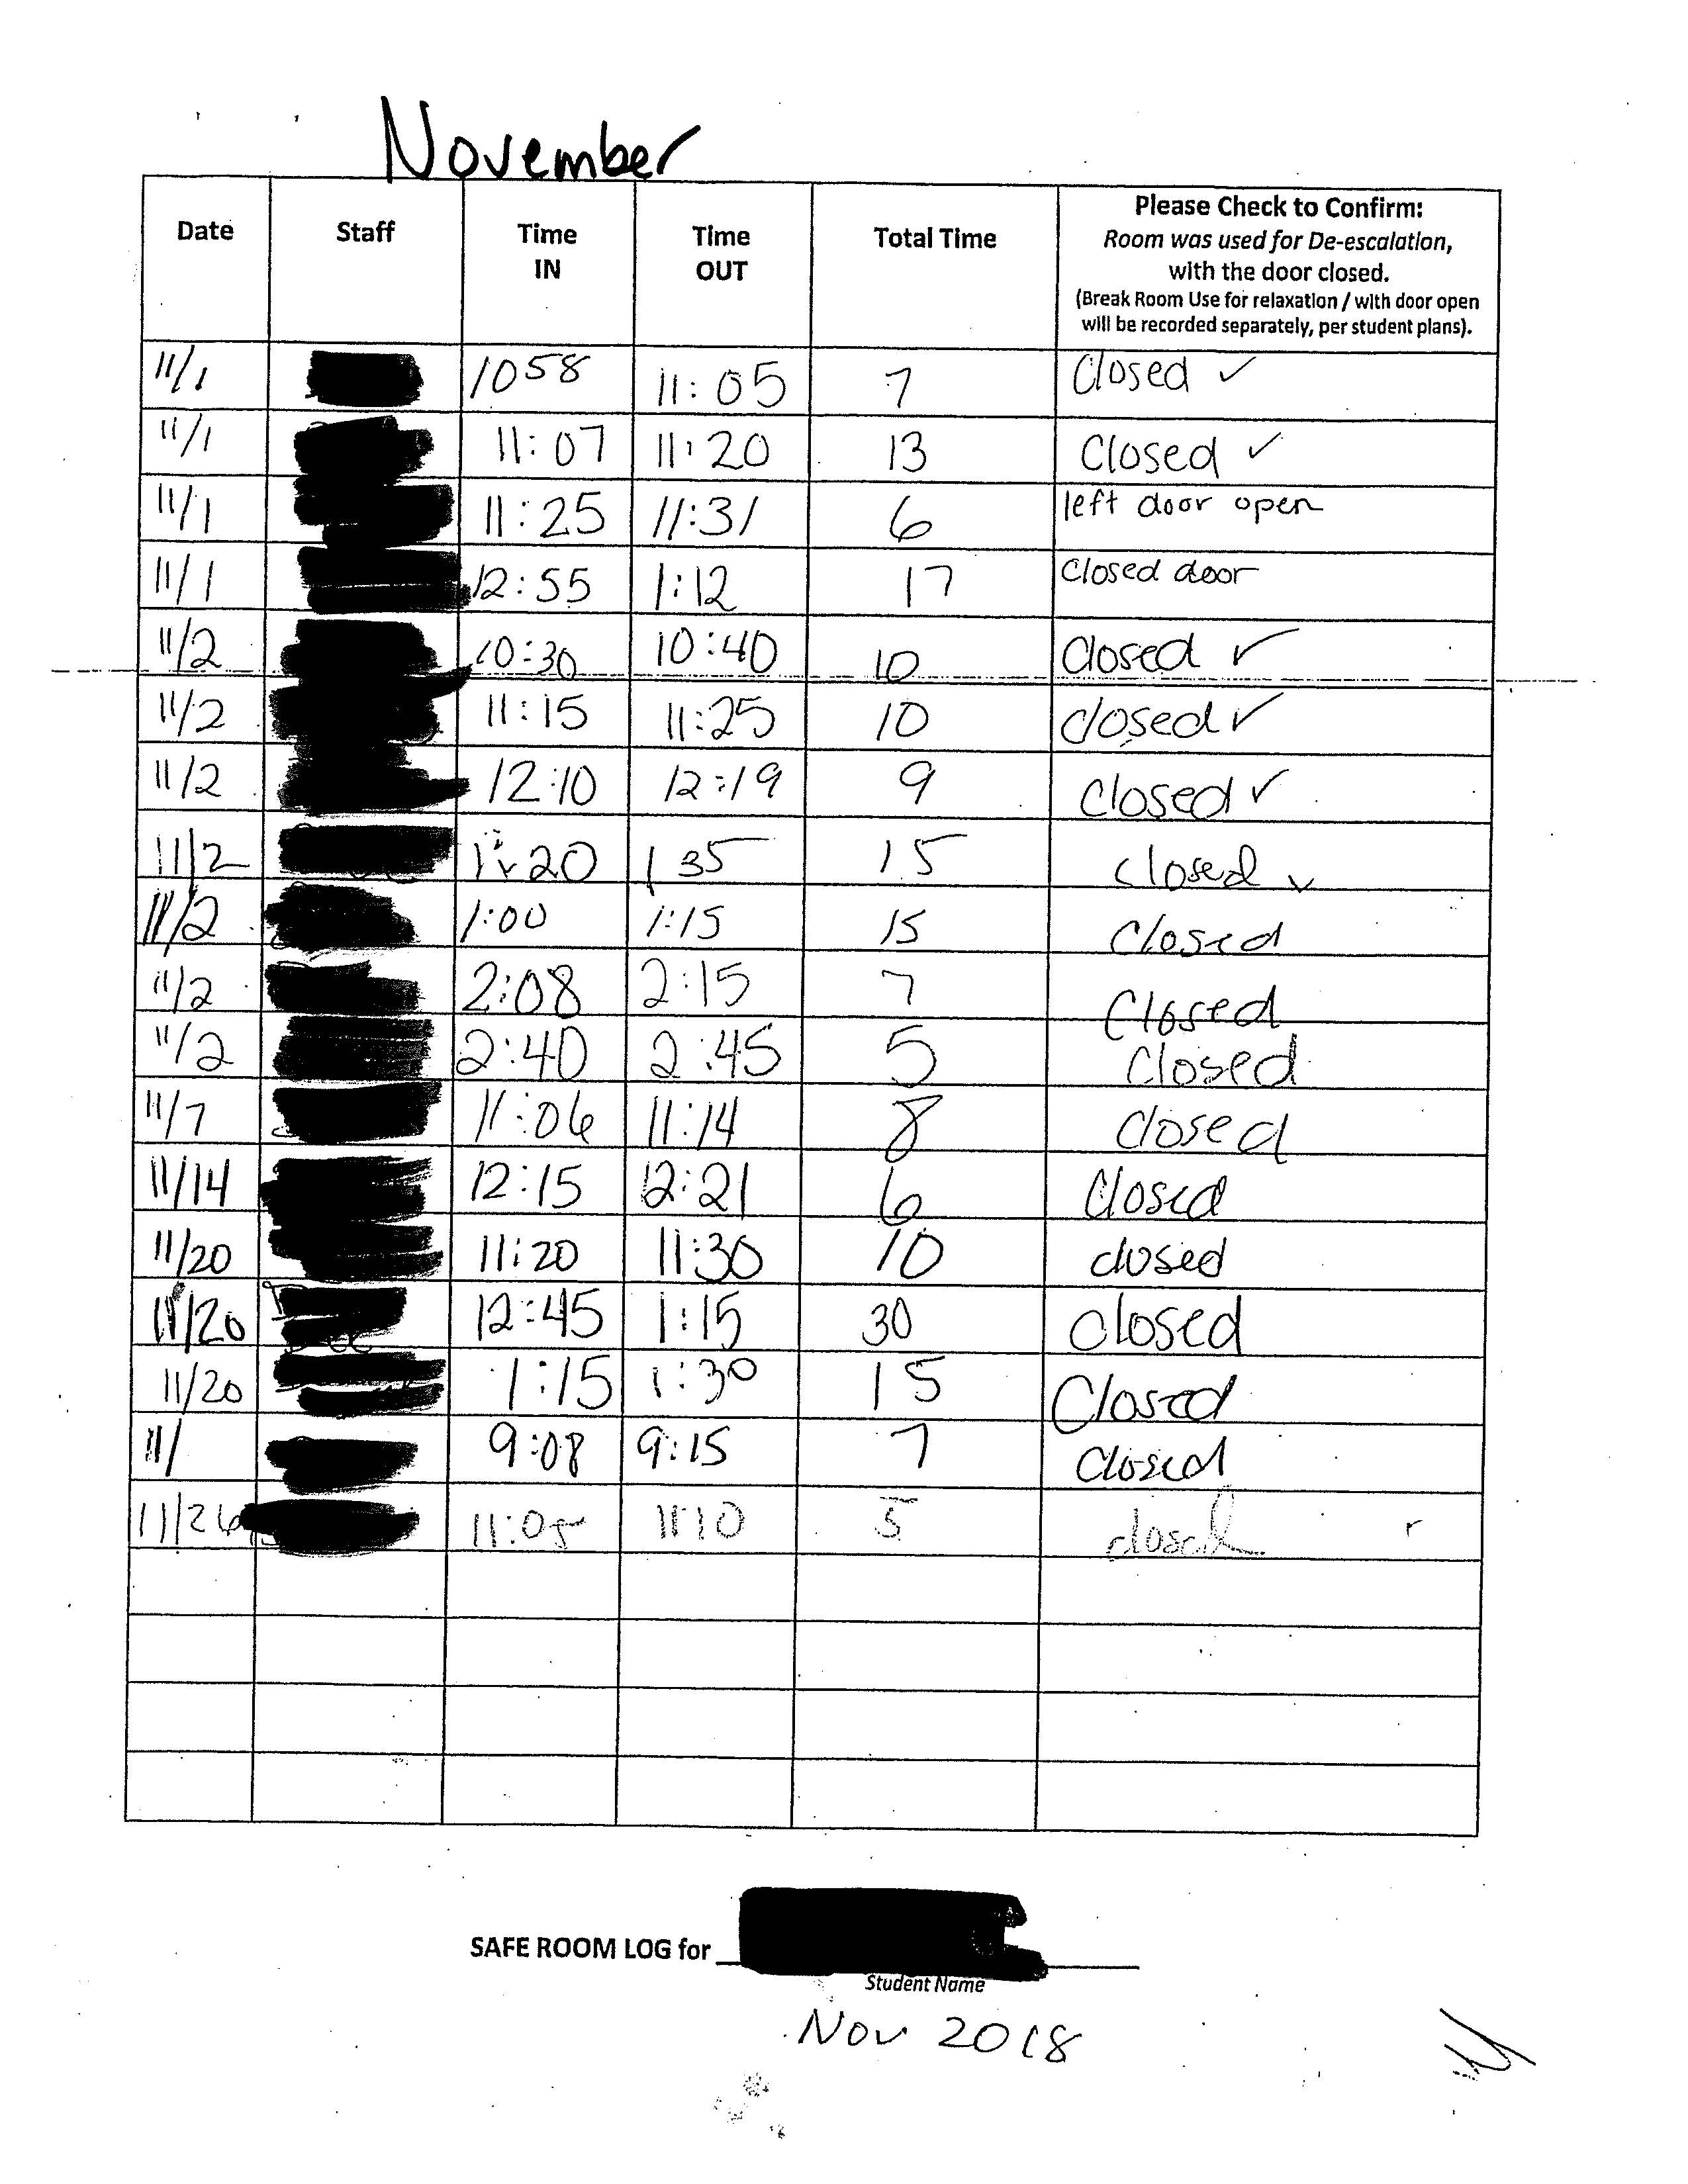 November
Date Staff Time IN Time OUT Total Time Please Check to Confirm:
Room was used for De-escalation,
with the door closed.
(Break Room Use for relaxation / with door open
will be recorded separately, per student plans).
11/1 1058 11:05 7 Closed ✓
11/1 11:07 11:20 13 Closed ✓
11/1 11:25 11:31 6 left door open
11/1 12:55 1:12 17 Closed door
11/2 10:30 10:40 10 Closed ✓
11/2 11:15 11:25 10 closed ✓
11/2 12:10 12:19 9 closed ✓
11/2 20 1 35 15 closed ✓
11/2 1:00 1:15 15 Closed
11/2 2:08 2:15 7 Closed
11/2 2:40 2:45 5 Closed
11/7 11:06 11:14 8 closed
11/14 12:15 12:21 6 Closed
11/20 11:20 11:30 10 closed
11/20 12:45 1:15 30 closed
11/20 1:15 1:30 15 Closed
11/ 9:08 9:15 7 Closed
11/26 11:05 11:10 5 closed
SAFE ROOM LOG for
Student Name
Nov 2018